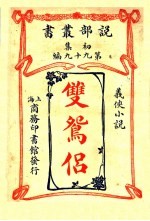 說部叢書
初集
第九十九編
義俠小說
雙鴛侶
上海商務印書館發行